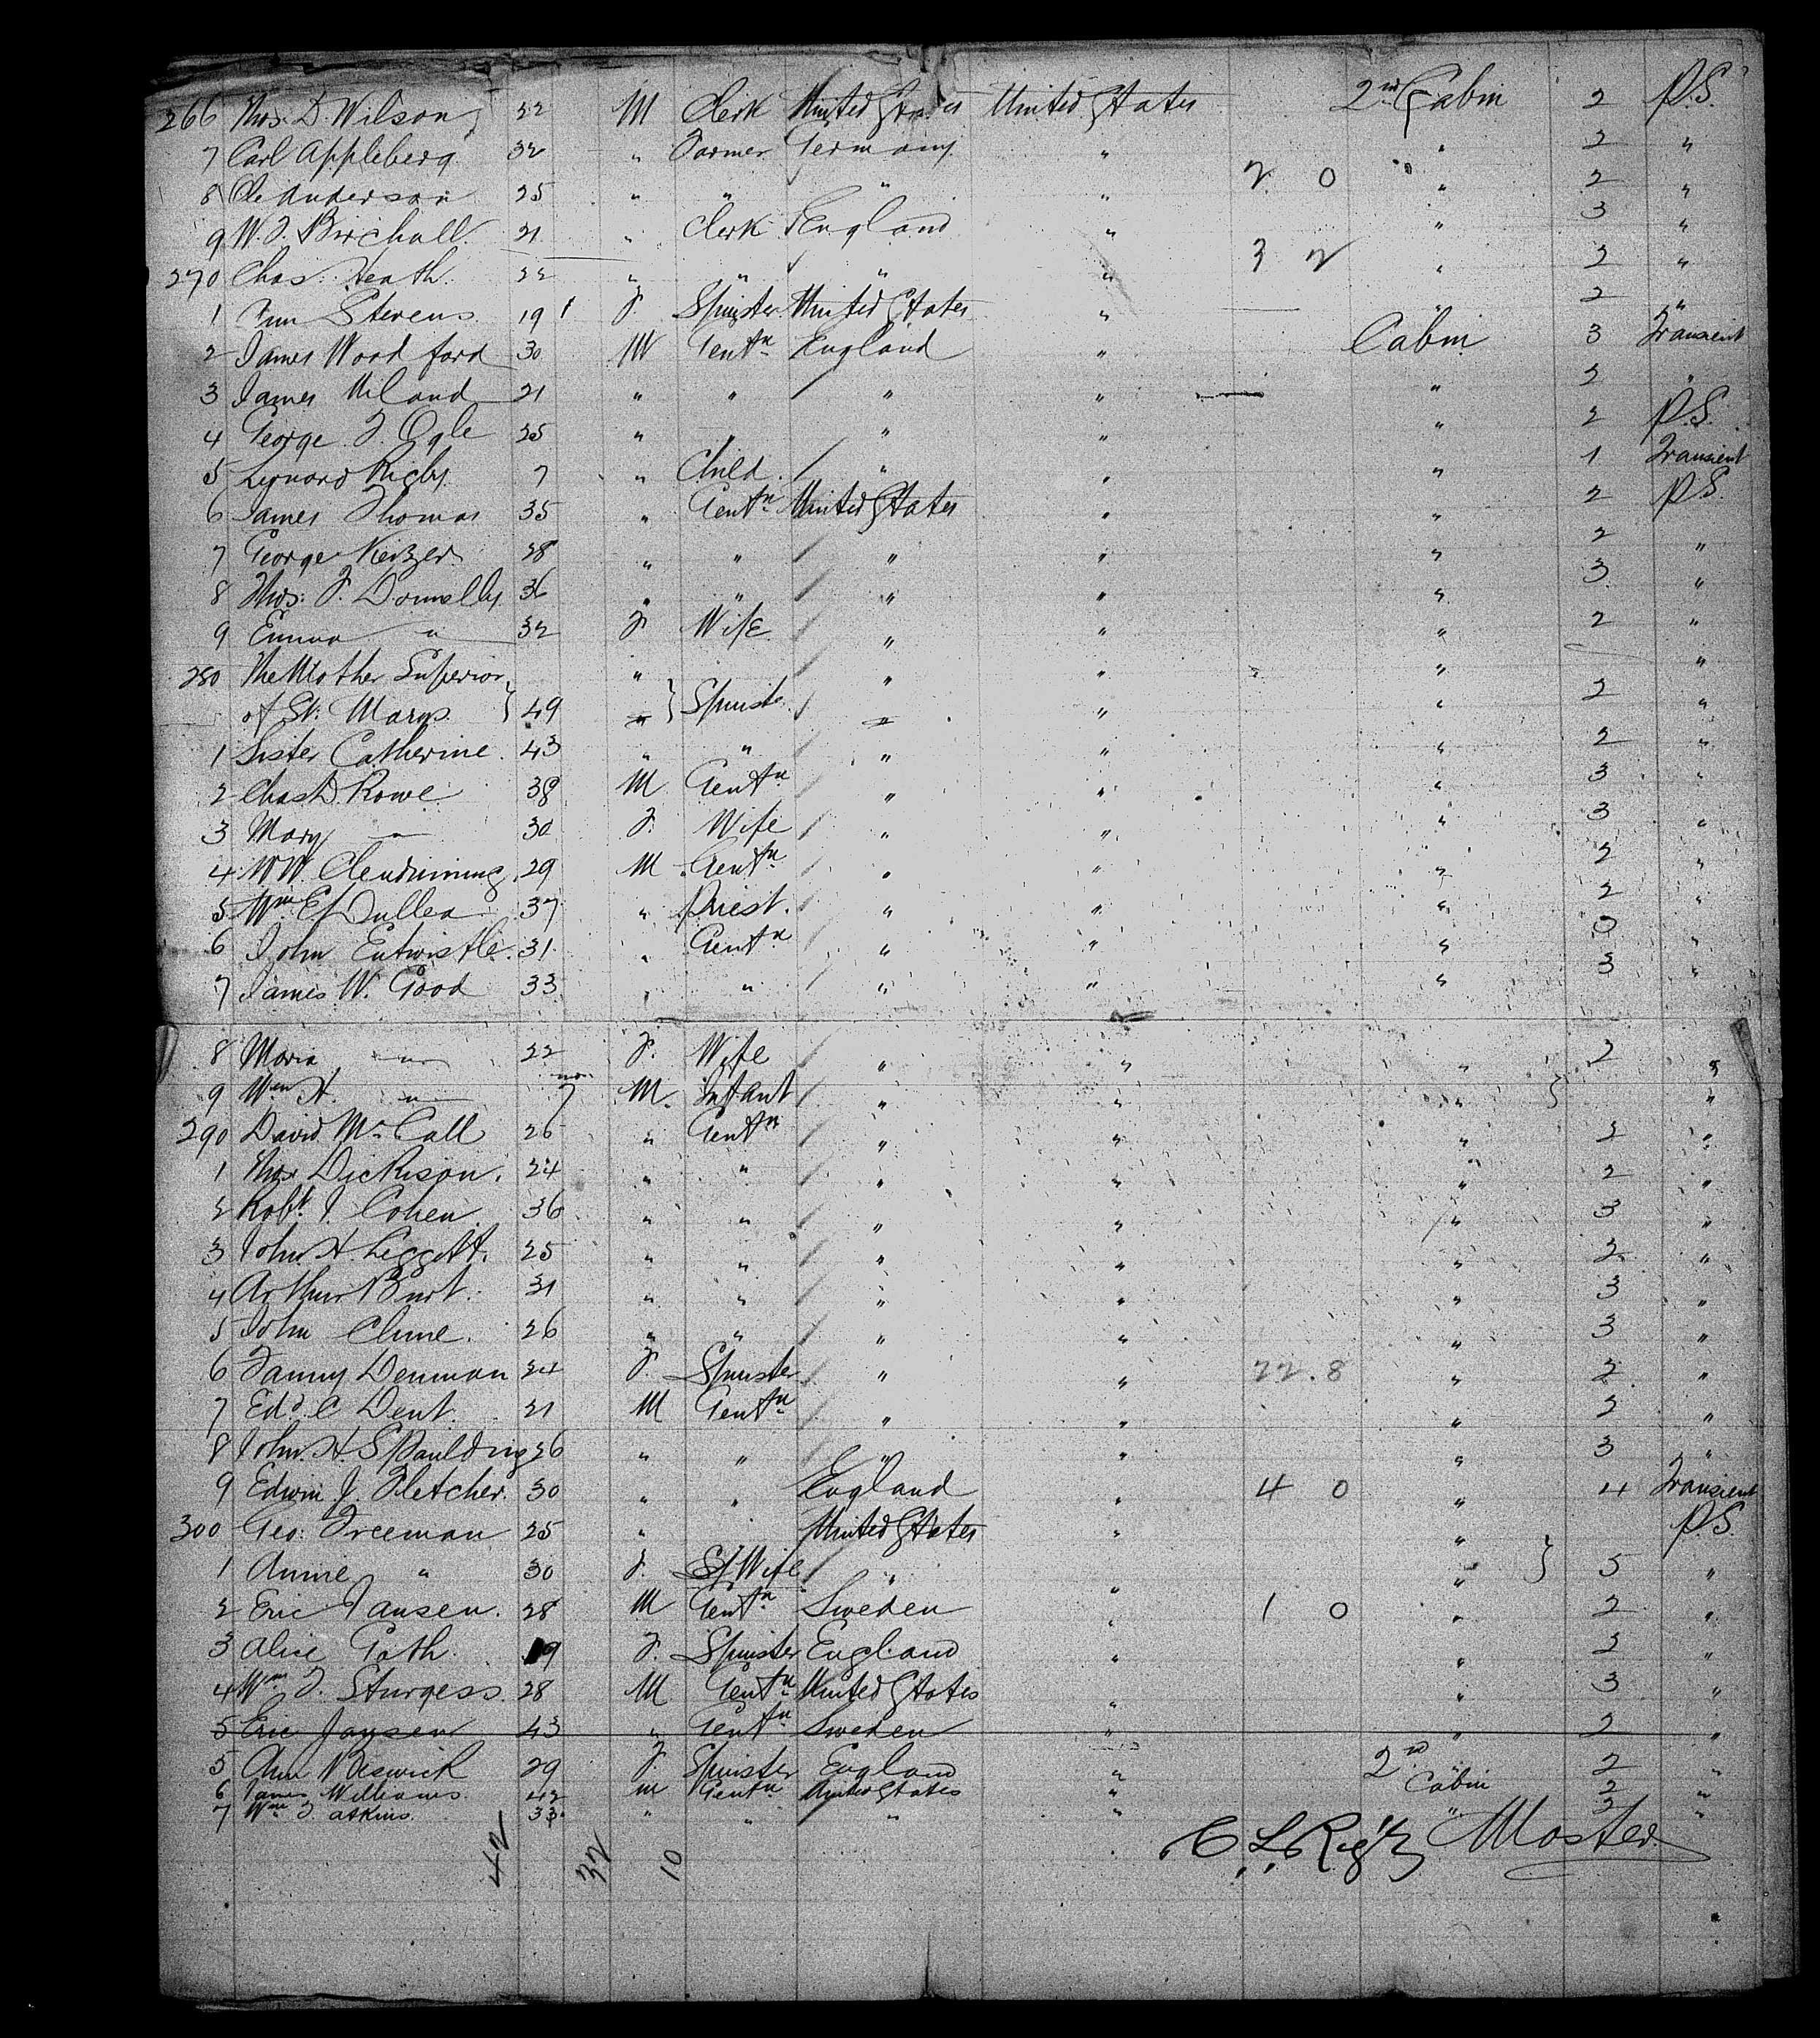 266 Thos. D. Wilson 22 M Clerk United States United States 2nd Cabin 2 P.S.
7 Carl Appleberg 32 " Farmer Germany " " 2 "
8 Ole Anderson 25 " " " " 2 0 " 2 "
9 W. J. Birchall 21 " Clerk England " " 3 "
270 Chas. Heath 22 " " " " 3 2 " 2 "
1 Stevens 19 F. Spinster United States " " 2 "
2 James Wood ford 30 M Gentn England " Cabin 3 Transient
3 James 21 " " " " " 2 "
4 George F. Ogle 25 " " " " " 2 P.S.
5 Leonard Rigby 7 " Child " " " 1 Transient
6 James Thomas 35 " Gentn United States " " 2 P.S.
7 George 28 " " " " " 2 "
8 Thos: F. Donnelly 36 " " " " " 3 "
9 Emma " 32 F Wife " " " 2 "
280 The Mother Superior " " " " "
of St. Marys } 49 " } Spinste " " " 2 "
1 Sister Catherine 43 " " " " " 2 "
2 Chas D. Rowe 38 M Gentn " " " 3 "
3 Mary " 30 F. Wife " " " 3 "
4 W W. Clendinning 29 M Gentn " " " 2 "
5 Wm 37 " Priest. " " " 2 "
6 John Entwistle. 31 " Gentn " " " 0 "
7 James W. Good 33 " " " " " 3 "
8 Maria " 22 F. Wife " " " 2 "
9 Wm H. " 7 mon M. Infant " " " } "
290 David McCall 26 " Gentn " " " 2 "
1 Thos Dickison. 24 " " " " " 2 "
2 Robt. J. Cohen 36 " " " " " 3 "
3 John H. Leggett. 25 " " " " " 2 "
4 Arthur Burt. 31 " " " " " 3 "
5 John Clune. 26 " " " " " 3 "
6 Fanny Denman 24 F. Spinster " " 22.8 " 2 "
7 Edd. C Dent. 21 M Gentn " " " 2 "
8 John. H. Spaulding 26 " " " " " 3 "
9 Edwin J. Fletcher. 30 " " England " 4 0 " 4 Transient
300 Geo: Freeman 25 " United States " " P.S.
1 Annie " 30 F. Wife " " } 5 "
2 Eric Jansen. 28 M Gentn Sweden " 1 0 " 2 "
3 Alice Goth. 19 F. Spinster England " " 2 "
4 Wm F. Sturgess. 28 M Gentn United States " " 3 "
5 Eric Jansen 43 " Gentn Sweden " " 2 "
5 Ann Beswick 29 F. Spinster England " 2nd Cabin 2 "
6 James Williams. 42 M Gentn United States " 2 "
7 Wm F. Atkins. 33 " " " " " 3 "
42 32 10
C. L. Rigby Master